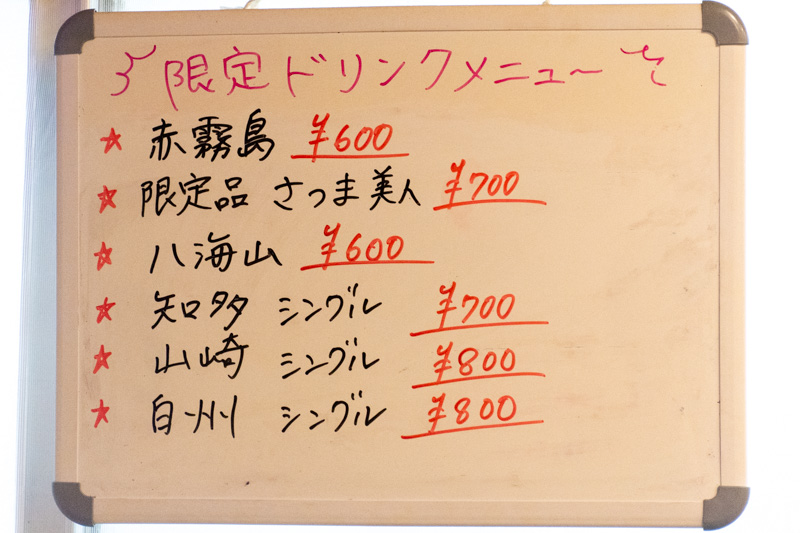 限定ドリンクメニュー
★ 赤霧島 ¥600
★ 限定品 さつま美人 ¥700
★ 八海山 ¥600
★ 知多 シングル ¥700
★ 山崎 シングル ¥800
★ 白州 シングル ¥800